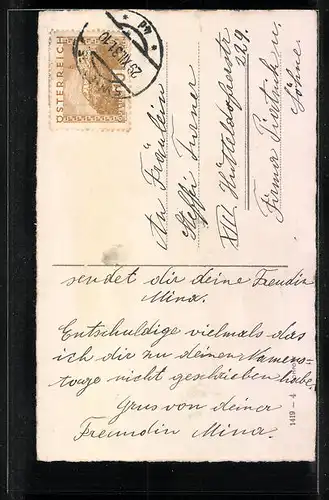 ÖSTERREICH
29.XI.31.10
An Fräulein
Steffi Turner
XIII. Hütteldorferstr
229.
Firma Piatnik u.
Söhne.
sendet dir deine Freundin
Mina.
Entschuldige vielmals das
ich dir zu deinen Namens-
tage nicht geschrieben habe.
Grus von deiner
Freundin Mina.
1419 - 4